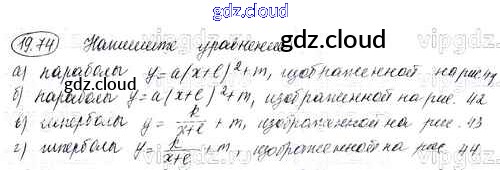 gdz.cloud
19.74 Напишите уравнение gdz.cloud
а) параболы y=a(x+l)²+m, изображенной на рис 41
б) параболы y=a(x+l)²+m, изображенной на рис. 42
в) гиперболы y = k/(x+l) + m, изображенной на рис. 43
г) гиперболы y = k/(x+l) + m, изображенной на рис. 44.
gdz.cloud